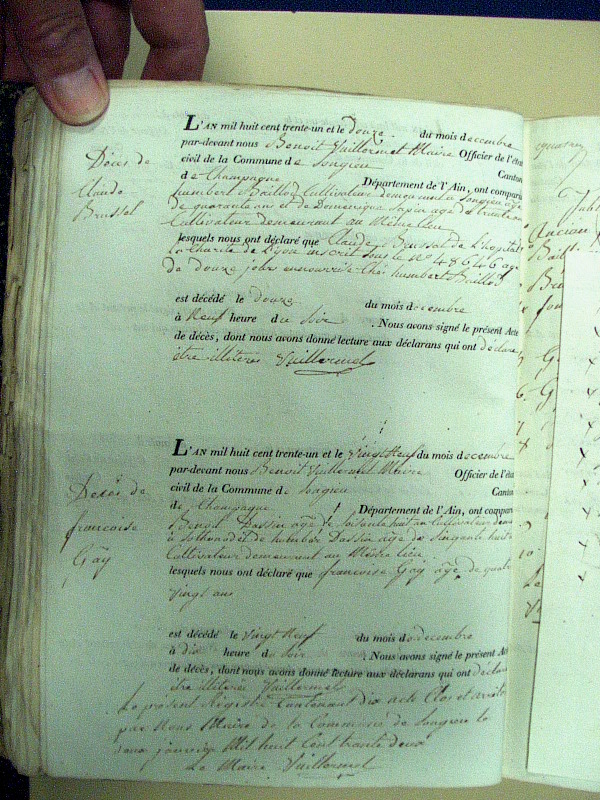 L'AN mil huit cent trente-un et le Douze du mois decembre
par-devant nous Benoit Vuillermet Maire Officier de l'éta
civil de la Commune de Songieu
de Champagne Canton
Département de l'Ain, ont compar
humbert Baillod Cultivateur demeurant a Songieu agé
de quarante ans et de Domenique age de trente
Cultivateur demeurant au
lesquels nous ont déclaré que Claude Brussel de L'hopital
La Charité de Lyon inscrit sous le N° 48646 age
De douze jours en nourrice Chez humbert Baillod
est décédé le Douze du mois decembre
à Neuf heure du soir . Nous avons signé le présent Acte
de décès, dont nous avons donné lecture aux déclarans qui ont déclaré
être illiteres Vuillermet
Déces de
Claude
Brussel
L'AN mil huit cent trente-un et le Vingt Neuf du mois decembre
par-devant nous Benoit Vuillermet Maire Officier de l'éta
civil de la Commune de Songieu Canton
de Champagne , Département de l'Ain, ont compar
Benoit Passin agé de Soixante huit an Cultivateur
a Sothonod et de humber Passin agé de Sinquante huit
Cultivateur demeurant au Mêtre lieu
lesquels nous ont déclaré que françoise Gay agé de quatre
Vingt ans
est décédé le Vingt Neuf du mois de decembre
à dix heure du soir . Nous avons signé le présent Acte
de décès, dont nous avons donné lecture aux déclarans qui ont déclaré
être illiteres Vuillermet
Déces de
françoise
Gay
Le présent Registre Contenant dix acte Clos et arrêté
par Nous Maire de la Commune de Songieu le
janvier Mil huit Cent trente deux
Le Maire Vuillermet